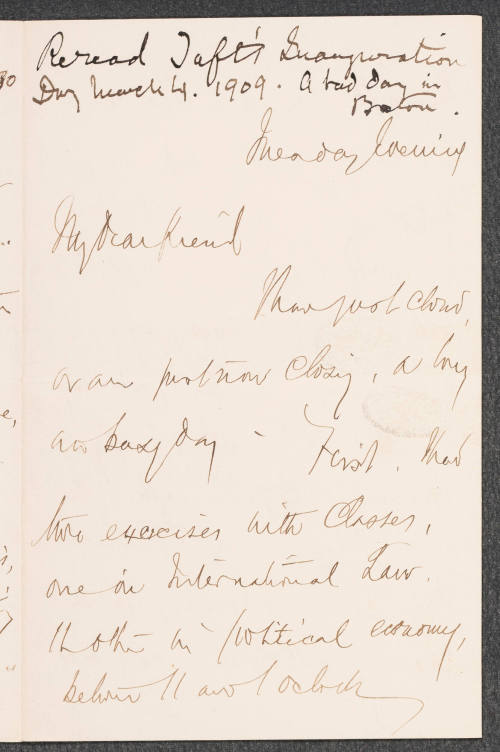 Reread Taft's Inauguration
Day March 4. 1909. A bad day in
Boston.
Monday Evening
My Dear Friend
I have just closed,
or am just now closing, a long
and busy day - First. I had
two exercises with Classes,
one in International Law.
the other in political economy,
between 11 and 1 oclock